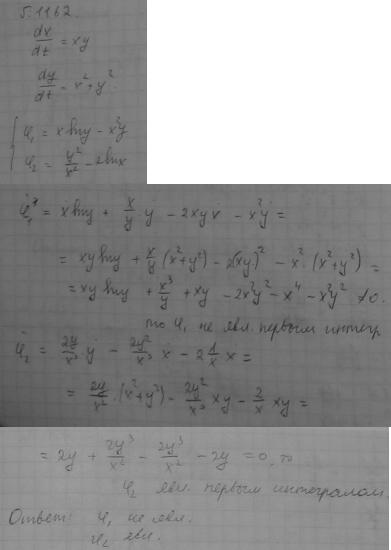 5.1162.
dx/dt = xy
dy/dt = x² + y².
{ φ₁ = x ln y − x²y
φ₂ = y²/x² − 2 ln x
φ̇₁ = ẋ ln y + x/y · ẏ − 2xyẋ − x²ẏ =
= xy ln y + x/y (x² + y²) − 2(xy)² − x² · (x² + y²) =
= xy ln y + x³/y + xy − 2x²y² − x⁴ − x²y² ≠ 0.
то φ₁ не явл. первым интегр
φ̇₂ = 2y/x² · ẏ − 2y²/x³ ẋ − 2 1/x ẋ =
= 2y/x² · (x² + y²) − 2y²/x³ xy − 2/x xy =
= 2y + 2y³/x² − 2y³/x² − 2y = 0, то
φ₂ явл. первым интегралом.
Ответ: φ₁ не явл.
φ₂ явл.